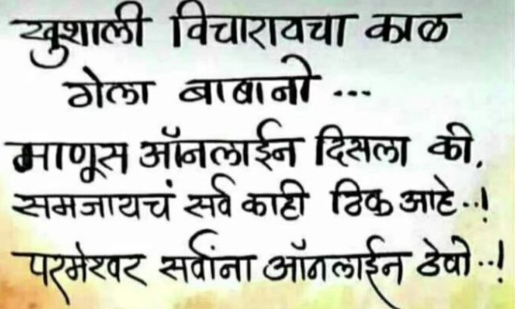 खुशाली विचारायचा काळ
गेला बाबानो ...
माणूस ऑनलाईन दिसला की.
समजायचं सर्व काही ठिक आहे..!
परमेश्वर सर्वांना ऑनलाईन ठेवो..!